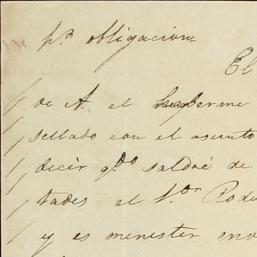 pª obligacion
El
de A. el
sellado con el asunto
decir qdo saldré de
tades el Sor Rode
y es menester env